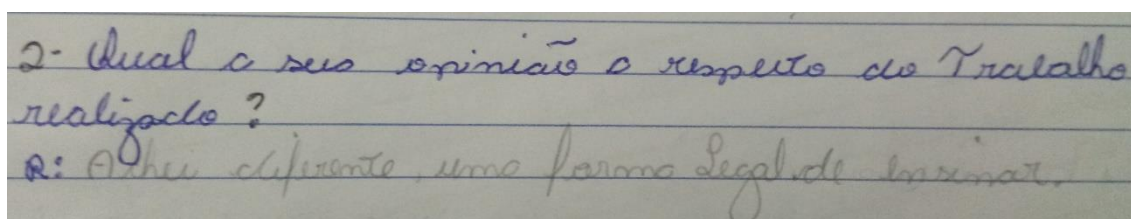 2- Qual a sua opinião a respeito do Trabalho
realizado?
R: Achei diferente, uma forma legal de ensinar.